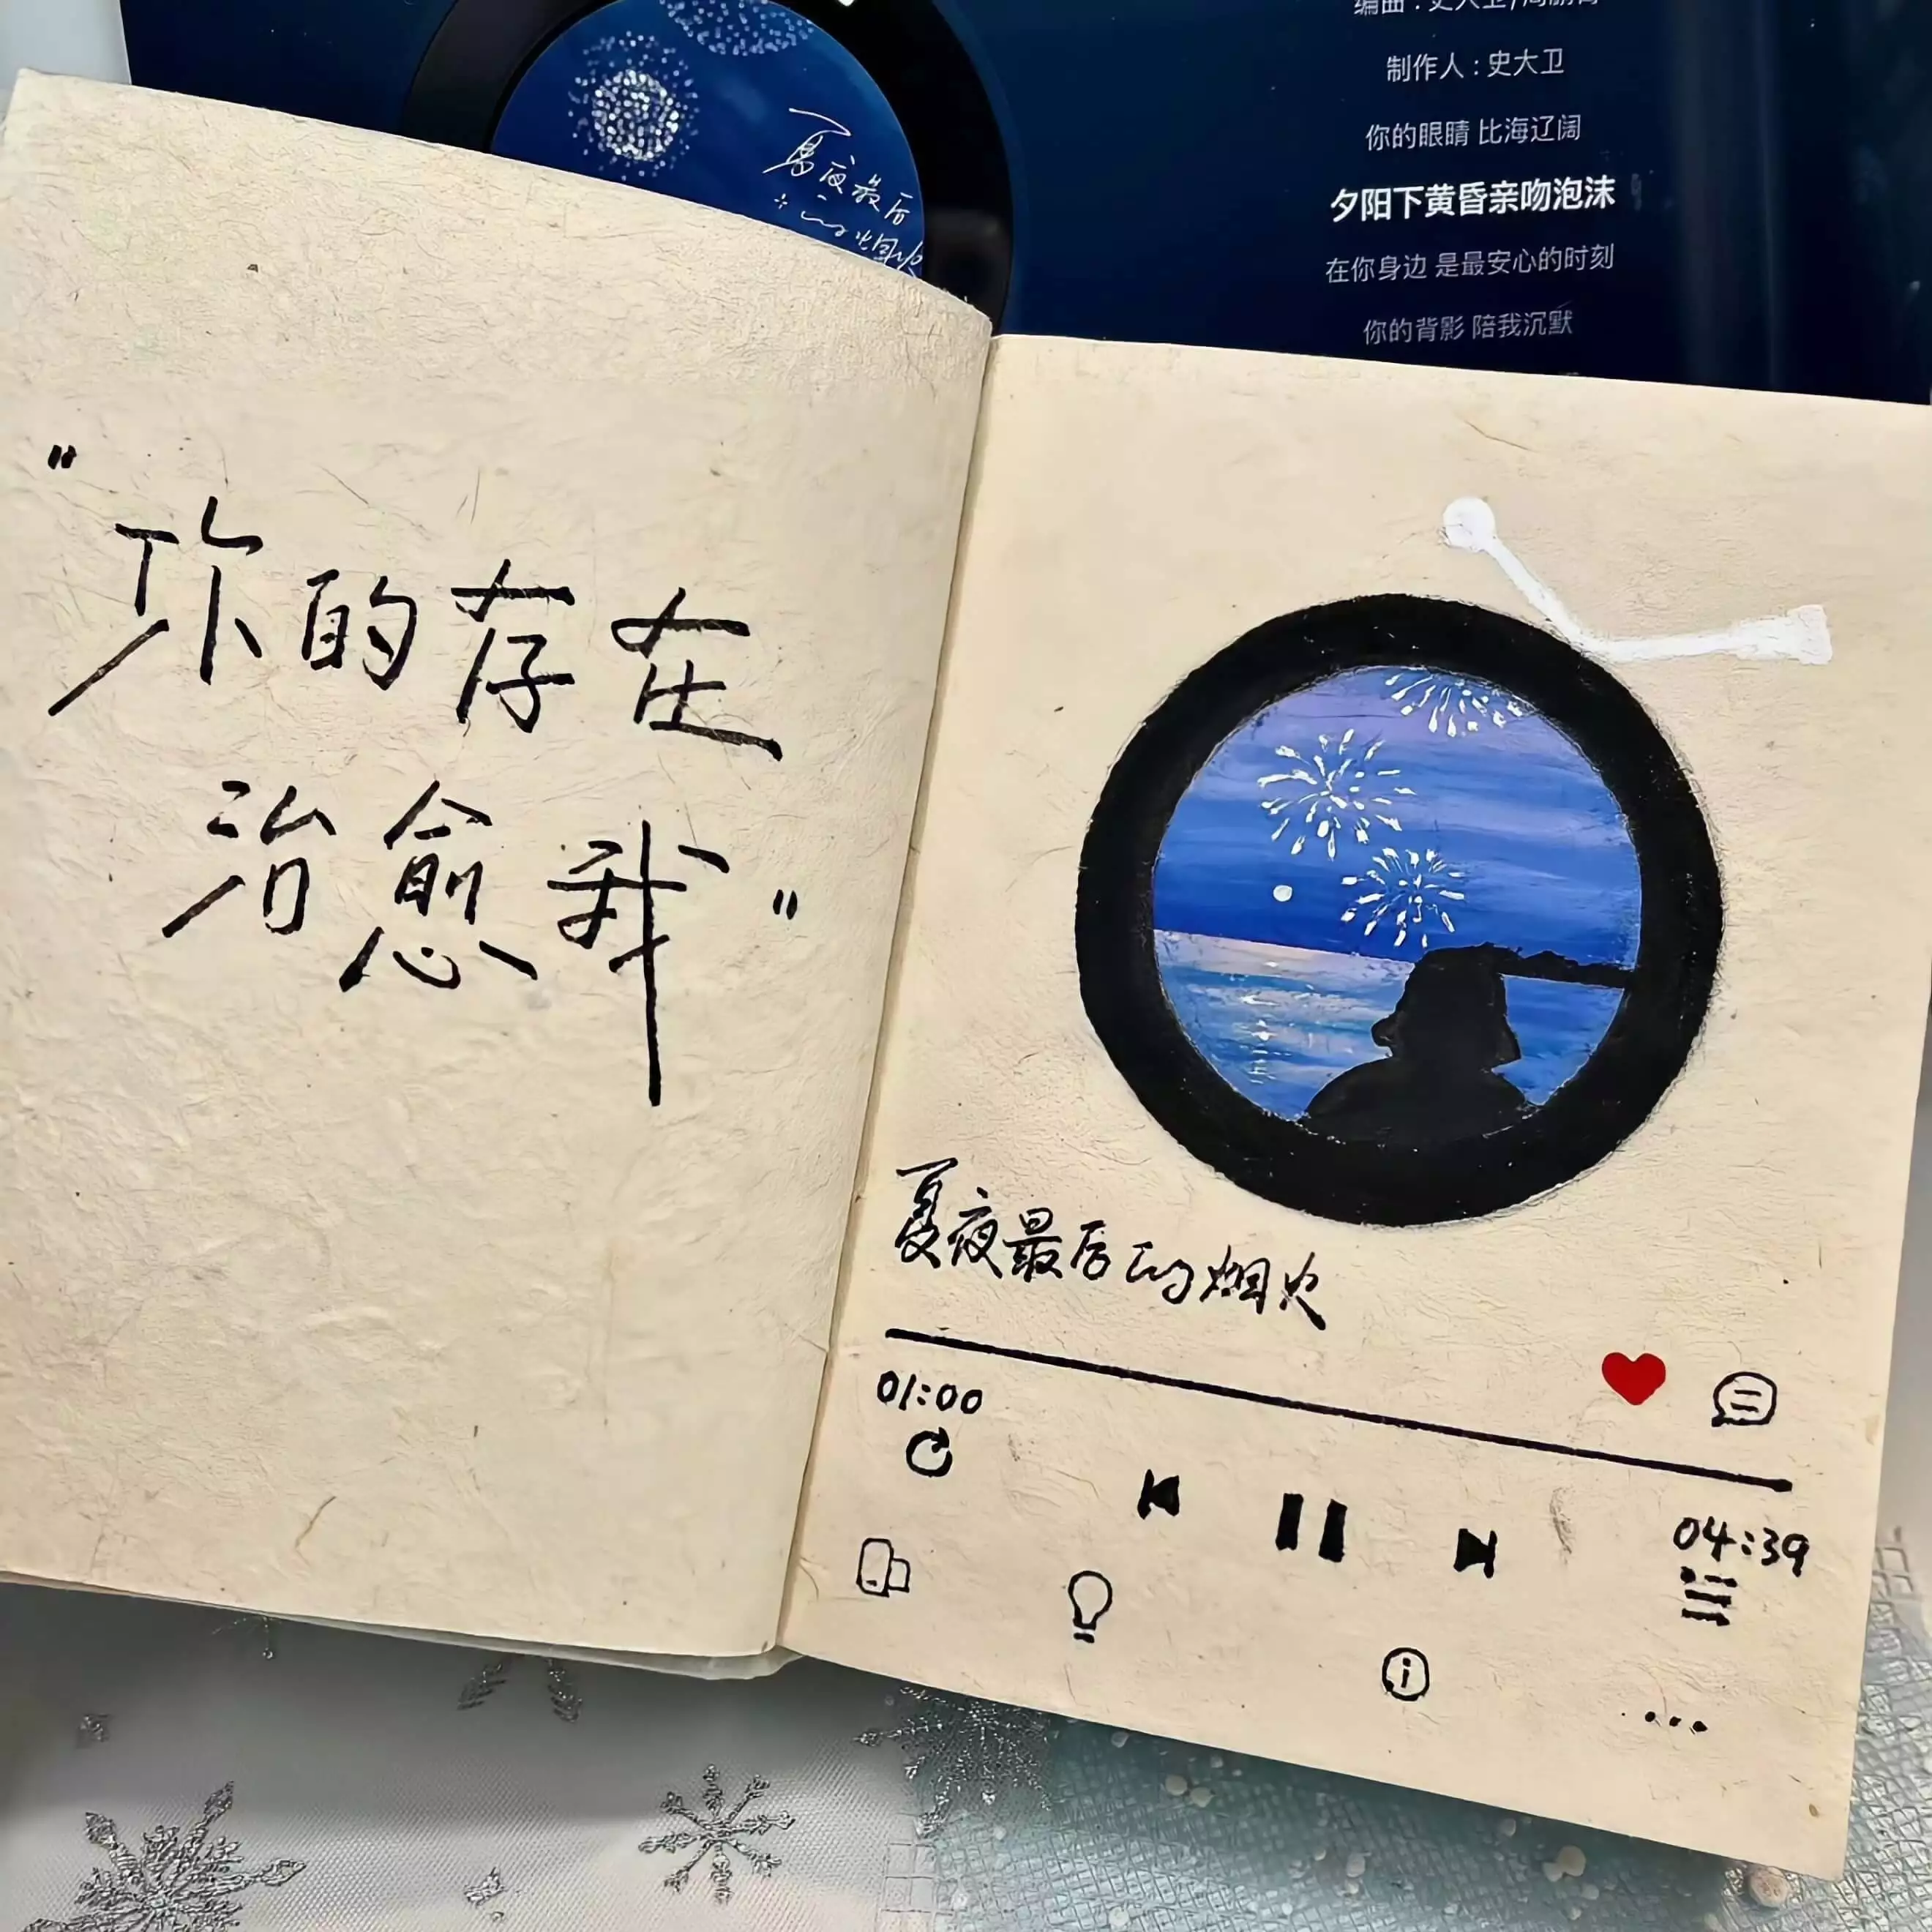 制作人：史大卫
你的眼睛 比海辽阔
夕阳下黄昏亲吻泡沫
在你身边 是最安心的时刻
你的背影 陪我沉默
夏夜最后
的烟火
"你的存在
治愈我"
夏夜最后的烟火
01:00
04:39